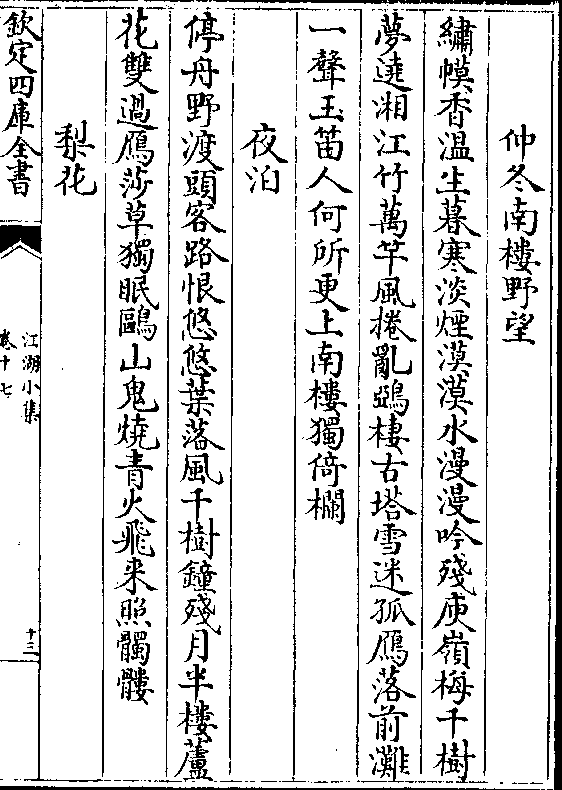 仲冬南樓野望
繡幙香温生暮寒淡煙漠漠水漫漫吟殘庾嶺梅千樹
夢遶湘江竹萬竿風捲亂鴉棲古塔雪迷孤鴈落前灘
一聲玉笛人何所更上南樓獨倚欄
夜泊
停舟野渡頭客路恨悠悠葉落風千樹鐘殘月半樓蘆
花雙過鴈莎草獨眠鷗山鬼燒青火飛来照髑髏
梨花
欽定四庫全書
江湖小集
卷十七
十三